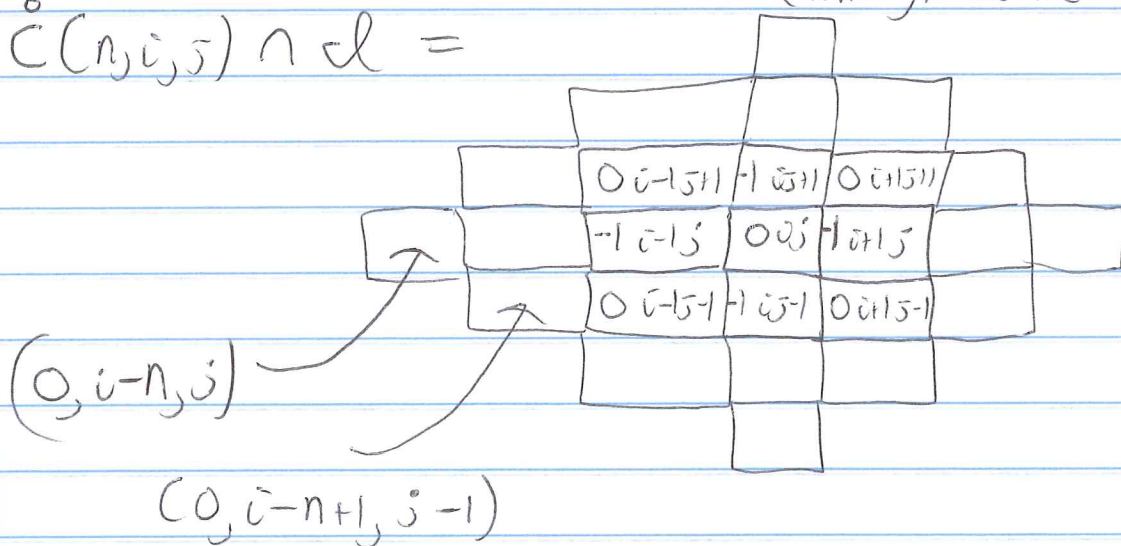 C̊(n,i,j) ∩ d =
0 i-1 j+1 -1 i j+1 0 i+1 j+1
-1 i-1 j 0 i j -1 i+1 j
0 i-1 j-1 -1 i j-1 0 i+1 j-1
(0, i-n, j)
(0, i-n+1, j-1)